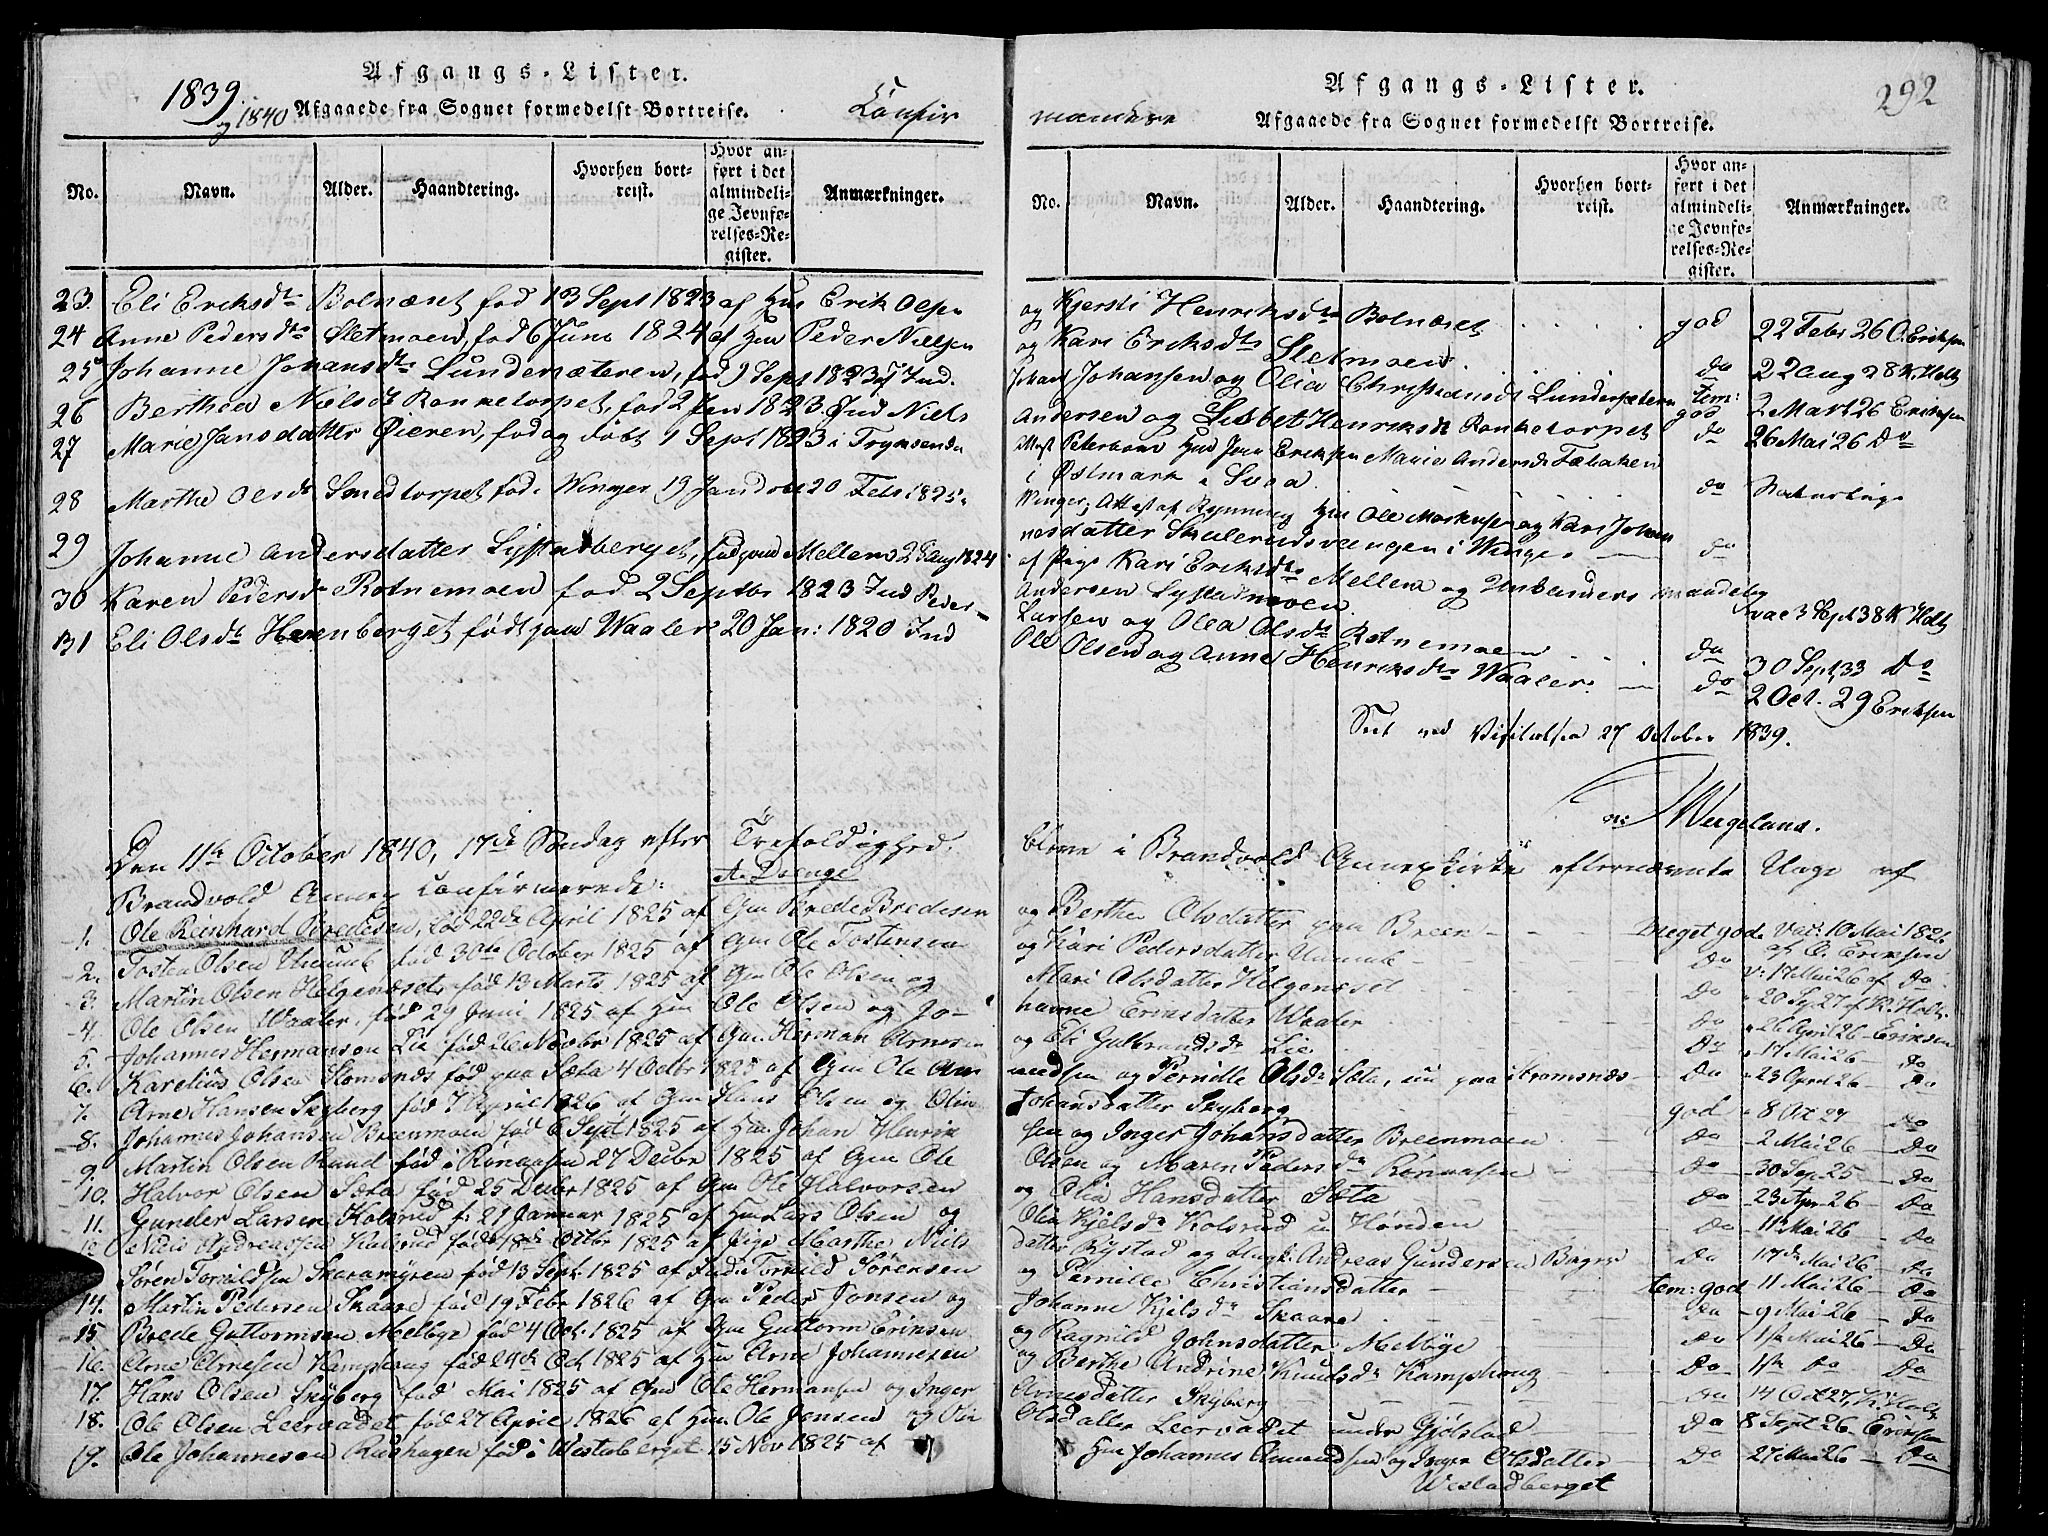 Afgangs-Lister.
1839 og 1840 Afgaaede fra Sognet formedelst Bortreise. Confir
No. Navn. Alder. Haandtering. Hvorhen bortreist. Hvor anført i det almindelige Jevnførelses-Register. Anmærkninger.
23. Eli Eriksdtr Bolnæset fød 13 Sept 1823 af Hus Erik Olsen
24 Anne Pedersdtr Sletmoen, fød 6 Juni 1824 af Hm Peder Nielsen
25 Johanne Johansdtr Lundersæteren, fød 9 Sept 1823 af Ind.
26 Berthea Nielsdt Ronketorpet, fød 2 Jan 1823. Ind Niels
27 Marie Jansdatter Øieren, fød og døbt 1 Sept 1823 i Tryksende
28 Marthe Olsdt Smedtorpet fød i Winger 19 Jan døbt 20 Feb 1825.
29 Johanne Andersdatter Lystadberget, fød paa Mellem 28 aug 1824
30 Karen Pedersdt Rotnemoen fød 2 Septbr 1823 Ind Peder
31 Eli Olsdt Herenberget født paa Waaler 20 Jan: 1820 Ind
Den 11te October 1840, 17de Søndag efter Trefoldighed,
Brandvold Annex confirmerede:
A. Drenge
1. Ole Reinhard Bredesen, fød 22de April 1825 af Gm Brede Bredesen
2. Tosten Olsen Unumb fød 30te October 1825 af Gm Ole Tostensen
3. Martin Olsen Helgenæset fød 13 Marts 1825 af Gm Ole Olsen og
4. Ole Olsen Waaler, fød 29 Juni 1825 af Hm Ole Olsen og Jo-
5. Johannes Hermansen Lie fød 26 Novbr 1825 af Gm. Herman Arnesen
6. Karelius Olsen Stomsnes fød paa Sæta 4 Octbr 1825 af Gm Ole Am
7. Arne Hansen Skyberg fød 7 April 1826 af Gm Hans Olsen og Olia
8. Johannes Johansen Breenmoen fød 6 Sept 1825 af Hm Johan Henrik
9. Martin Olsen Rund fød i Rønaasen 27 Decbr 1825 af Gm Ole
10. Halvor Olsen Sæta fød 25 Decbr 1825 af Gm Ole Halvorsen
11. Gunder Larsen Kolsrud f: 21 Januar 1825 af Hm Lars Olsen og
Andreassen Kolsrud fød 18de Octbr 1825 af Pige Marthe Niels
Søren Torvildsen Skaramyren fød 13 Sept. 1825 af Ind. Torvild Sørensen
14. Martin Pedersen Skaare fød 19 Febr 1826 af Gm Peder Jonsen og
15 Brede Guttormsen Melbye fød 4 Oct. 1825 af Gm Guttorm Eriksen
16. Arne Arnesen Kamphoug fød 24de Oct 1825 af Hm Arne Johannesen
17. Hans Olsen Skyberg fød Mai 1825 af Gm Ole Hermansen og Inger
18. Ole Olsen Leervadet fød 27 April 1826 af Hm. Ole Jensen og Olia
19. Ole Johannesen Rashagen fød i Westaberget 15 Nov 1825 af
Afgangs-Lister. 292
mandere Afgaaede fra Sognet formedelst Bortreise.
No. Navn. Alder. Haandtering. Hvorhen bortreist. Hvor anført i det almindelige Jevnførelses-Register. Anmærkninger.
og Kjersti Henriksdtr Bolnæset god 22 Feb: 26 O. Eriksen
og Kari Eriksdtr Sletmoen. do 22 aug 28 K. Holtz
Johan Johansen og Olia Christiansdt Lundersæteren tem: god 2 Mart 26 Eriksen
Andersen og Lisbet Henriksdt Ronketorpet do 26 Mai 26 Do
Attest Peterborn Hm Jan Eriksen Marie Andersdt Fæbakken
i Østmark i Svea do
Winger, Attest af Rynning Hm Ole Markusen og Kari Johan
nesdatter Skulerudsvangen i Winger do
af Pige Kari Eriksdtr Mellem og Unbanders
Andersen Lystadmoen vac 3 Sept 38 K Holtz
Larsen og Olea Olsdtr Rotnemoen do 30 Sept. 33 Do
Ole Olsen og Anne Henriksdtr Waaler. do 2 Oct. 29 Eriksen
Seet ved Visitatsen 27 October 1839.
N: Wergeland.
bleve i Brandvold Annexkirke efternævnte Unge af
og Berthe Olsdatter paa Breen meget god. Vac: 10 Mai 1826 af O. Eriksen
og Kari Pedersdatter Unumb Do v: 17 Mai 26 af Do
Mari Olsdatter Helgeneset Do 20 Sep. 27 af K. Holtz
hanne Ernesdatter Waaler Do 26 April 26 Eriksen
og Eli Gulbrandsdr Lie Do 17 Mai 26 Do
undsen og Pernille Olsdr Sæta, nu paa Stromsnæs Do 23 April 26 Do
Johansdatter Skyberg god 8 Oct 27 Do
sen og Inger Johansdatter Breenmoen Do 2 Mai 26 Do
Olsen og Maren Pedersdr Rønaasen Do 30 Sep. 25 Do
og Olia Hansdatter Sæta Do 23 Apr 26 Do
Olia Kjelsdr Kolsrud Do 11te Mai 26 Do
datter Rystad og Ungk. Andreas Gundersen Bagre Do 17de Mai 26 Do
og Pernille Christiansdatter tem: god 11 Mai 26 Do
Johanne Kjelsdr Skaare Do 9 Mai 26 Do
og Ragnild Johnsdatter Melbye Do 1ste Mai 26 Do
og Berthe Andrine Knudsdr Kamphoug Do 1ste Do Do
Arnesdatter Skyberg Do 14 Oct 27, K. Holtz
Olsdatter Leervadet under Gjølstad Do 8 Sept 26 Eriksen
Hm Johannes Amundsen og Inger Olsdatter Do 27 Mai 26 Do
Westadberget